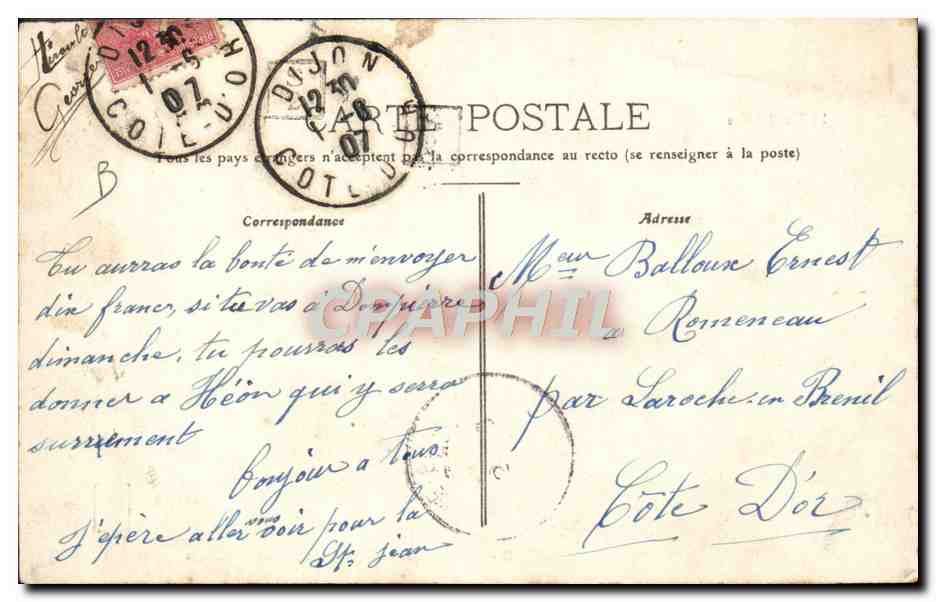 Héroult
George
DIJON
12 30
1-6
07
COTE-D'OR
DIJON
12 30
1-6
07
COTE-D'OR
CARTE POSTALE
Tous les pays étrangers n'acceptent pas la correspondance au recto (se renseigner à la poste)
B
Correspondance
Tu aurras la bonté de m'envoyer
dix francs, si tu vas à Dompierre
dimanche, tu pourras les
donner a Héon qui y serra
surrement
bonjour a tous
J'épère aller vous voir pour la
St jean
Adresse
Meur Balloux Ernest
a Romeneau
par Laroche-en Brenil
Côte D'or
CPAPHIL